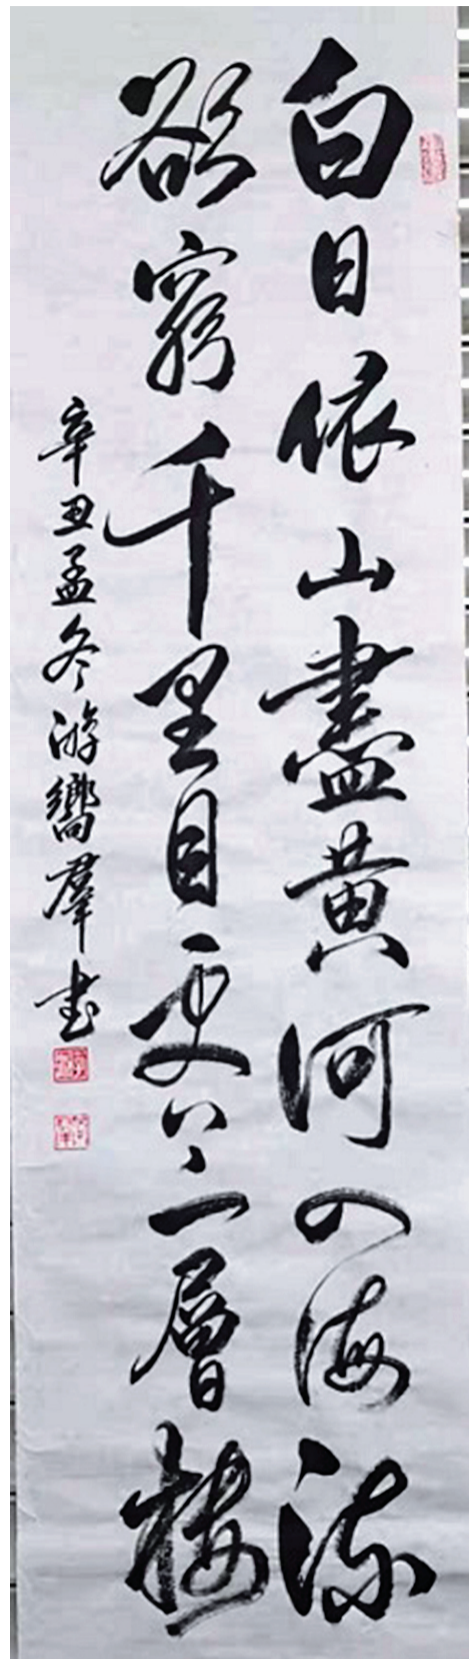 白日依山盡黄河入海流
欲窮千里目更上一層樓
辛丑孟冬游嚮羣書